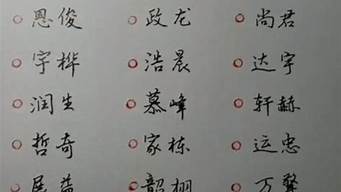 恩俊 政龙 尚君
宇桦 浩晨 达宇
润生 慕峰 轩赫
哲奇 家栋 运忠